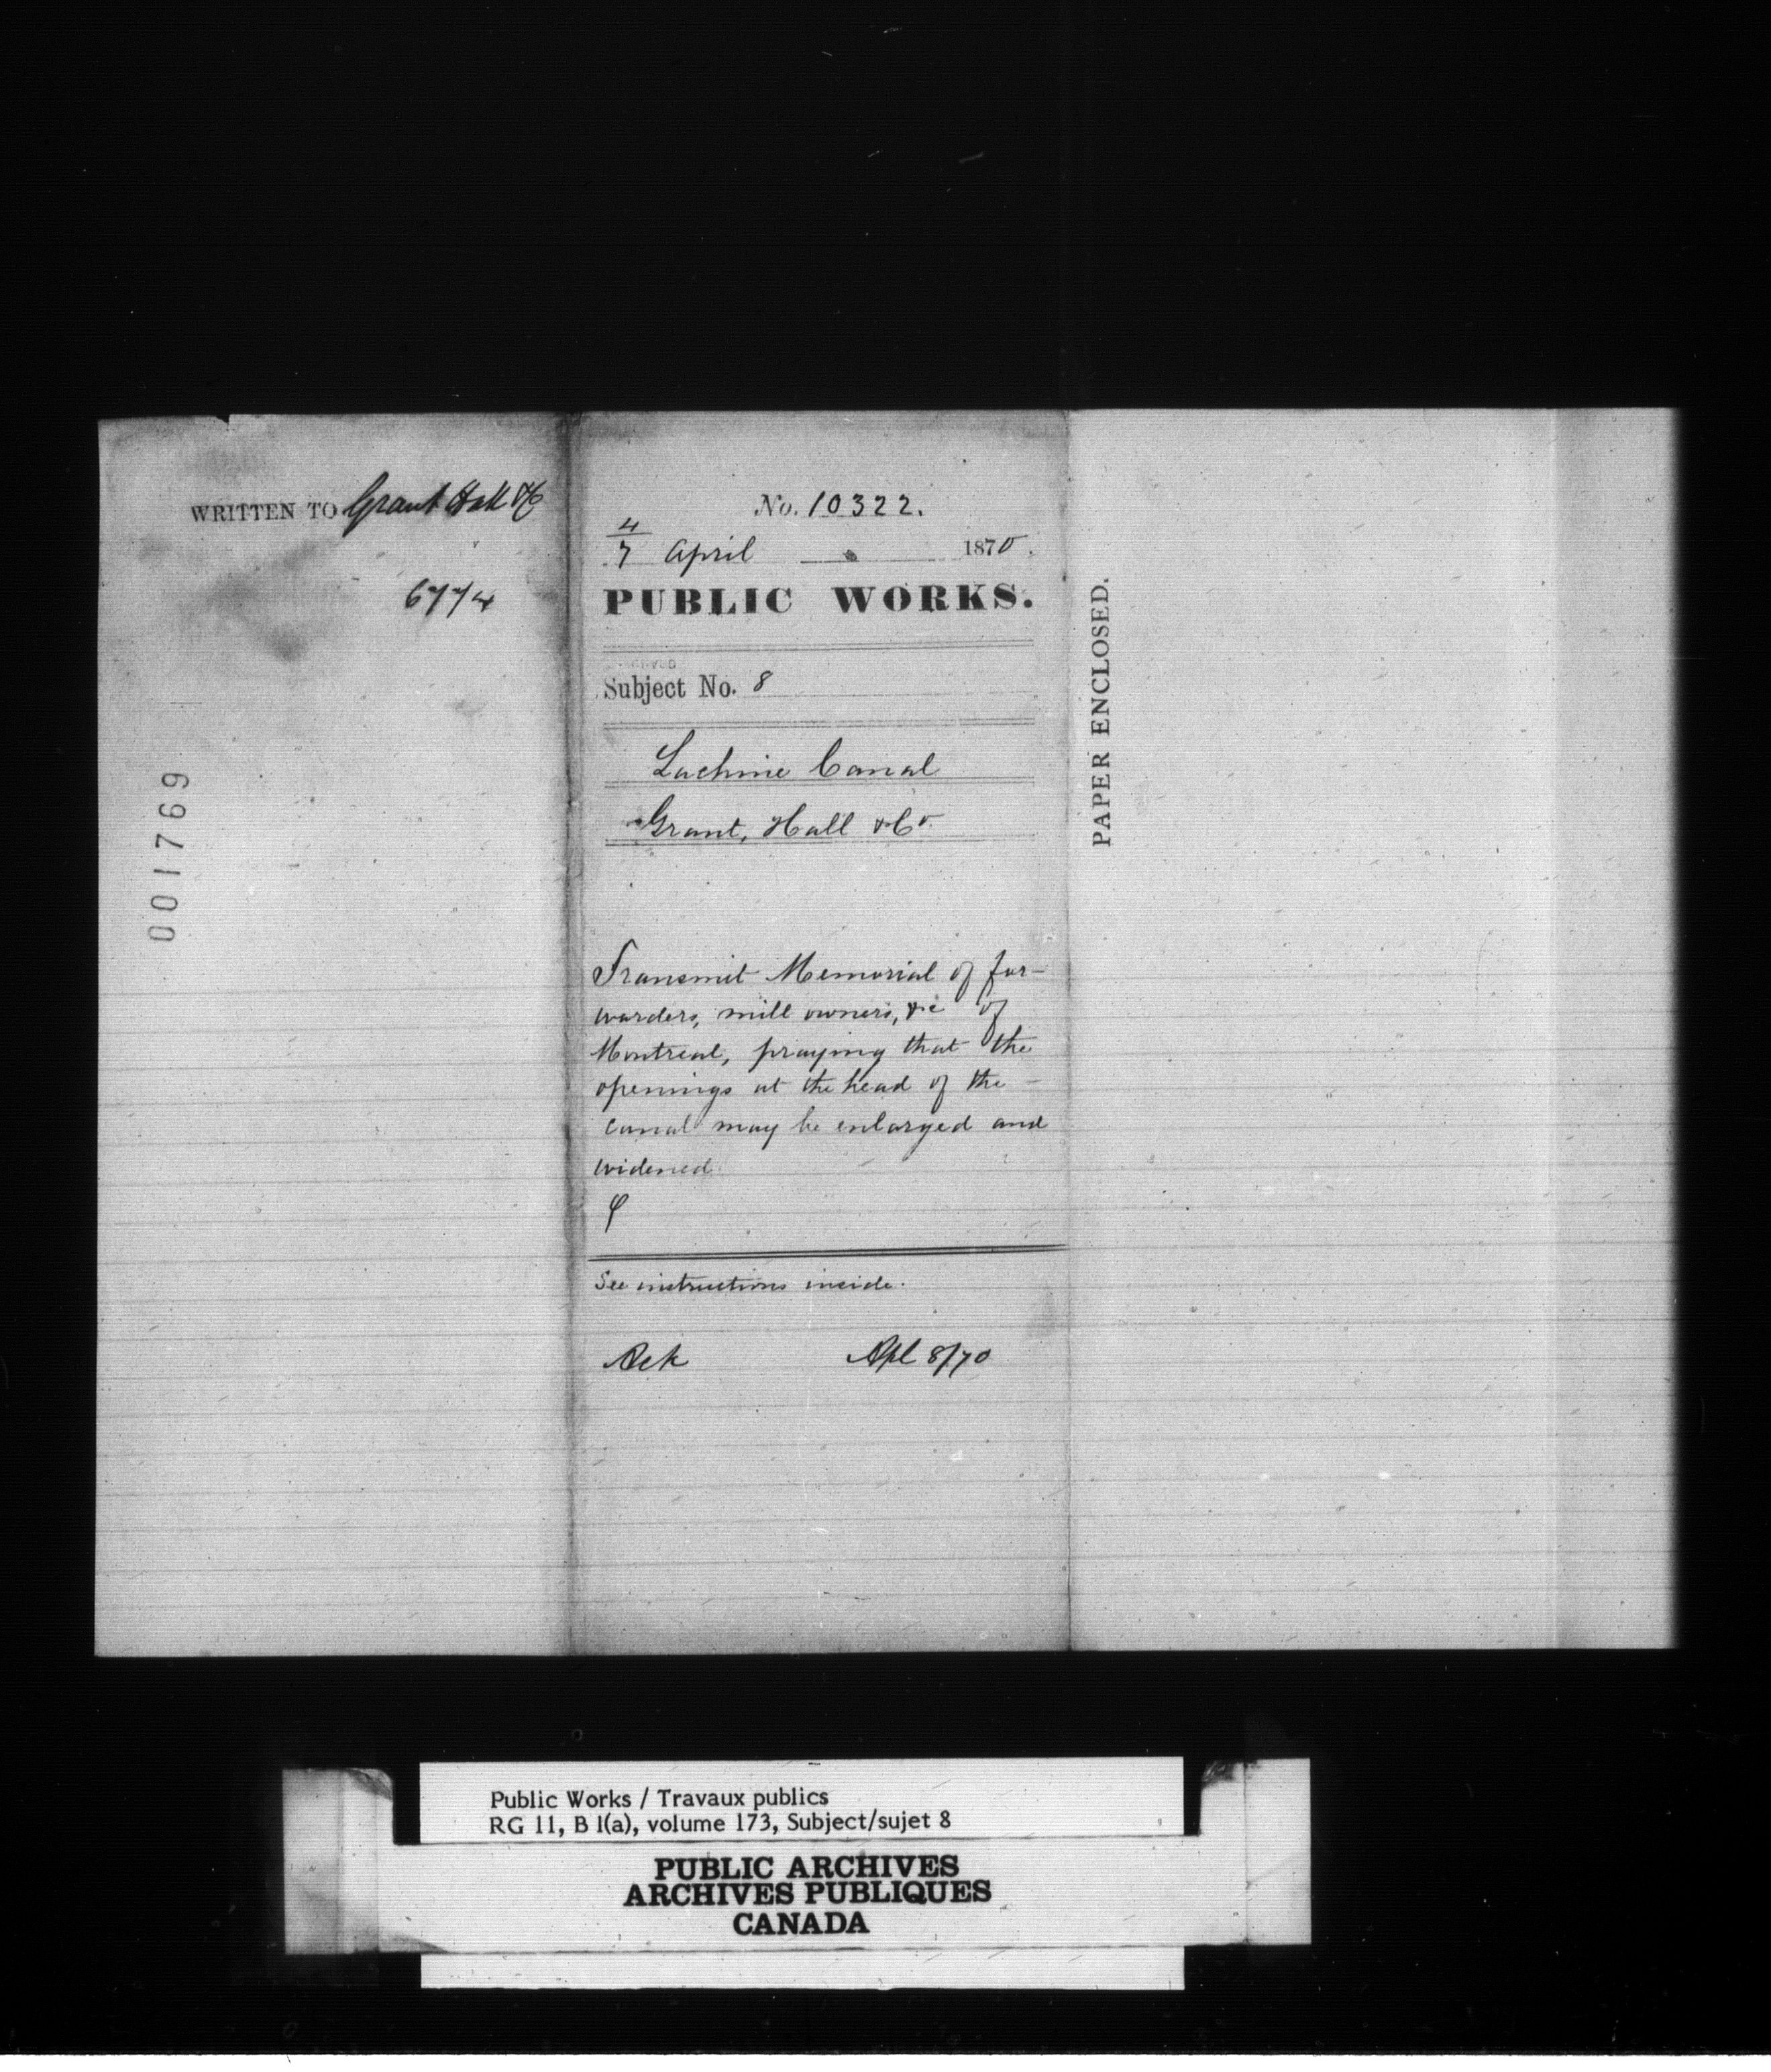 WRITTEN TO Grant Hall &Co
6774
001769
No. 10322.
4/7 April 1870.
PUBLIC WORKS.
Subject No. 8
Lachine Canal
Grant, Hall & Co.
Transmit Memorial of for-
warders, mill owners, &c of
Montreal, praying that the
openings at the head of the
canal may be enlarged and
widened
See instructions inside.
Ack Apl 8/70
PAPER ENCLOSED.
Public Works / Travaux publics
RG 11, B 1(a), volume 173, Subject/sujet 8
PUBLIC ARCHIVES
ARCHIVES PUBLIQUES
CANADA